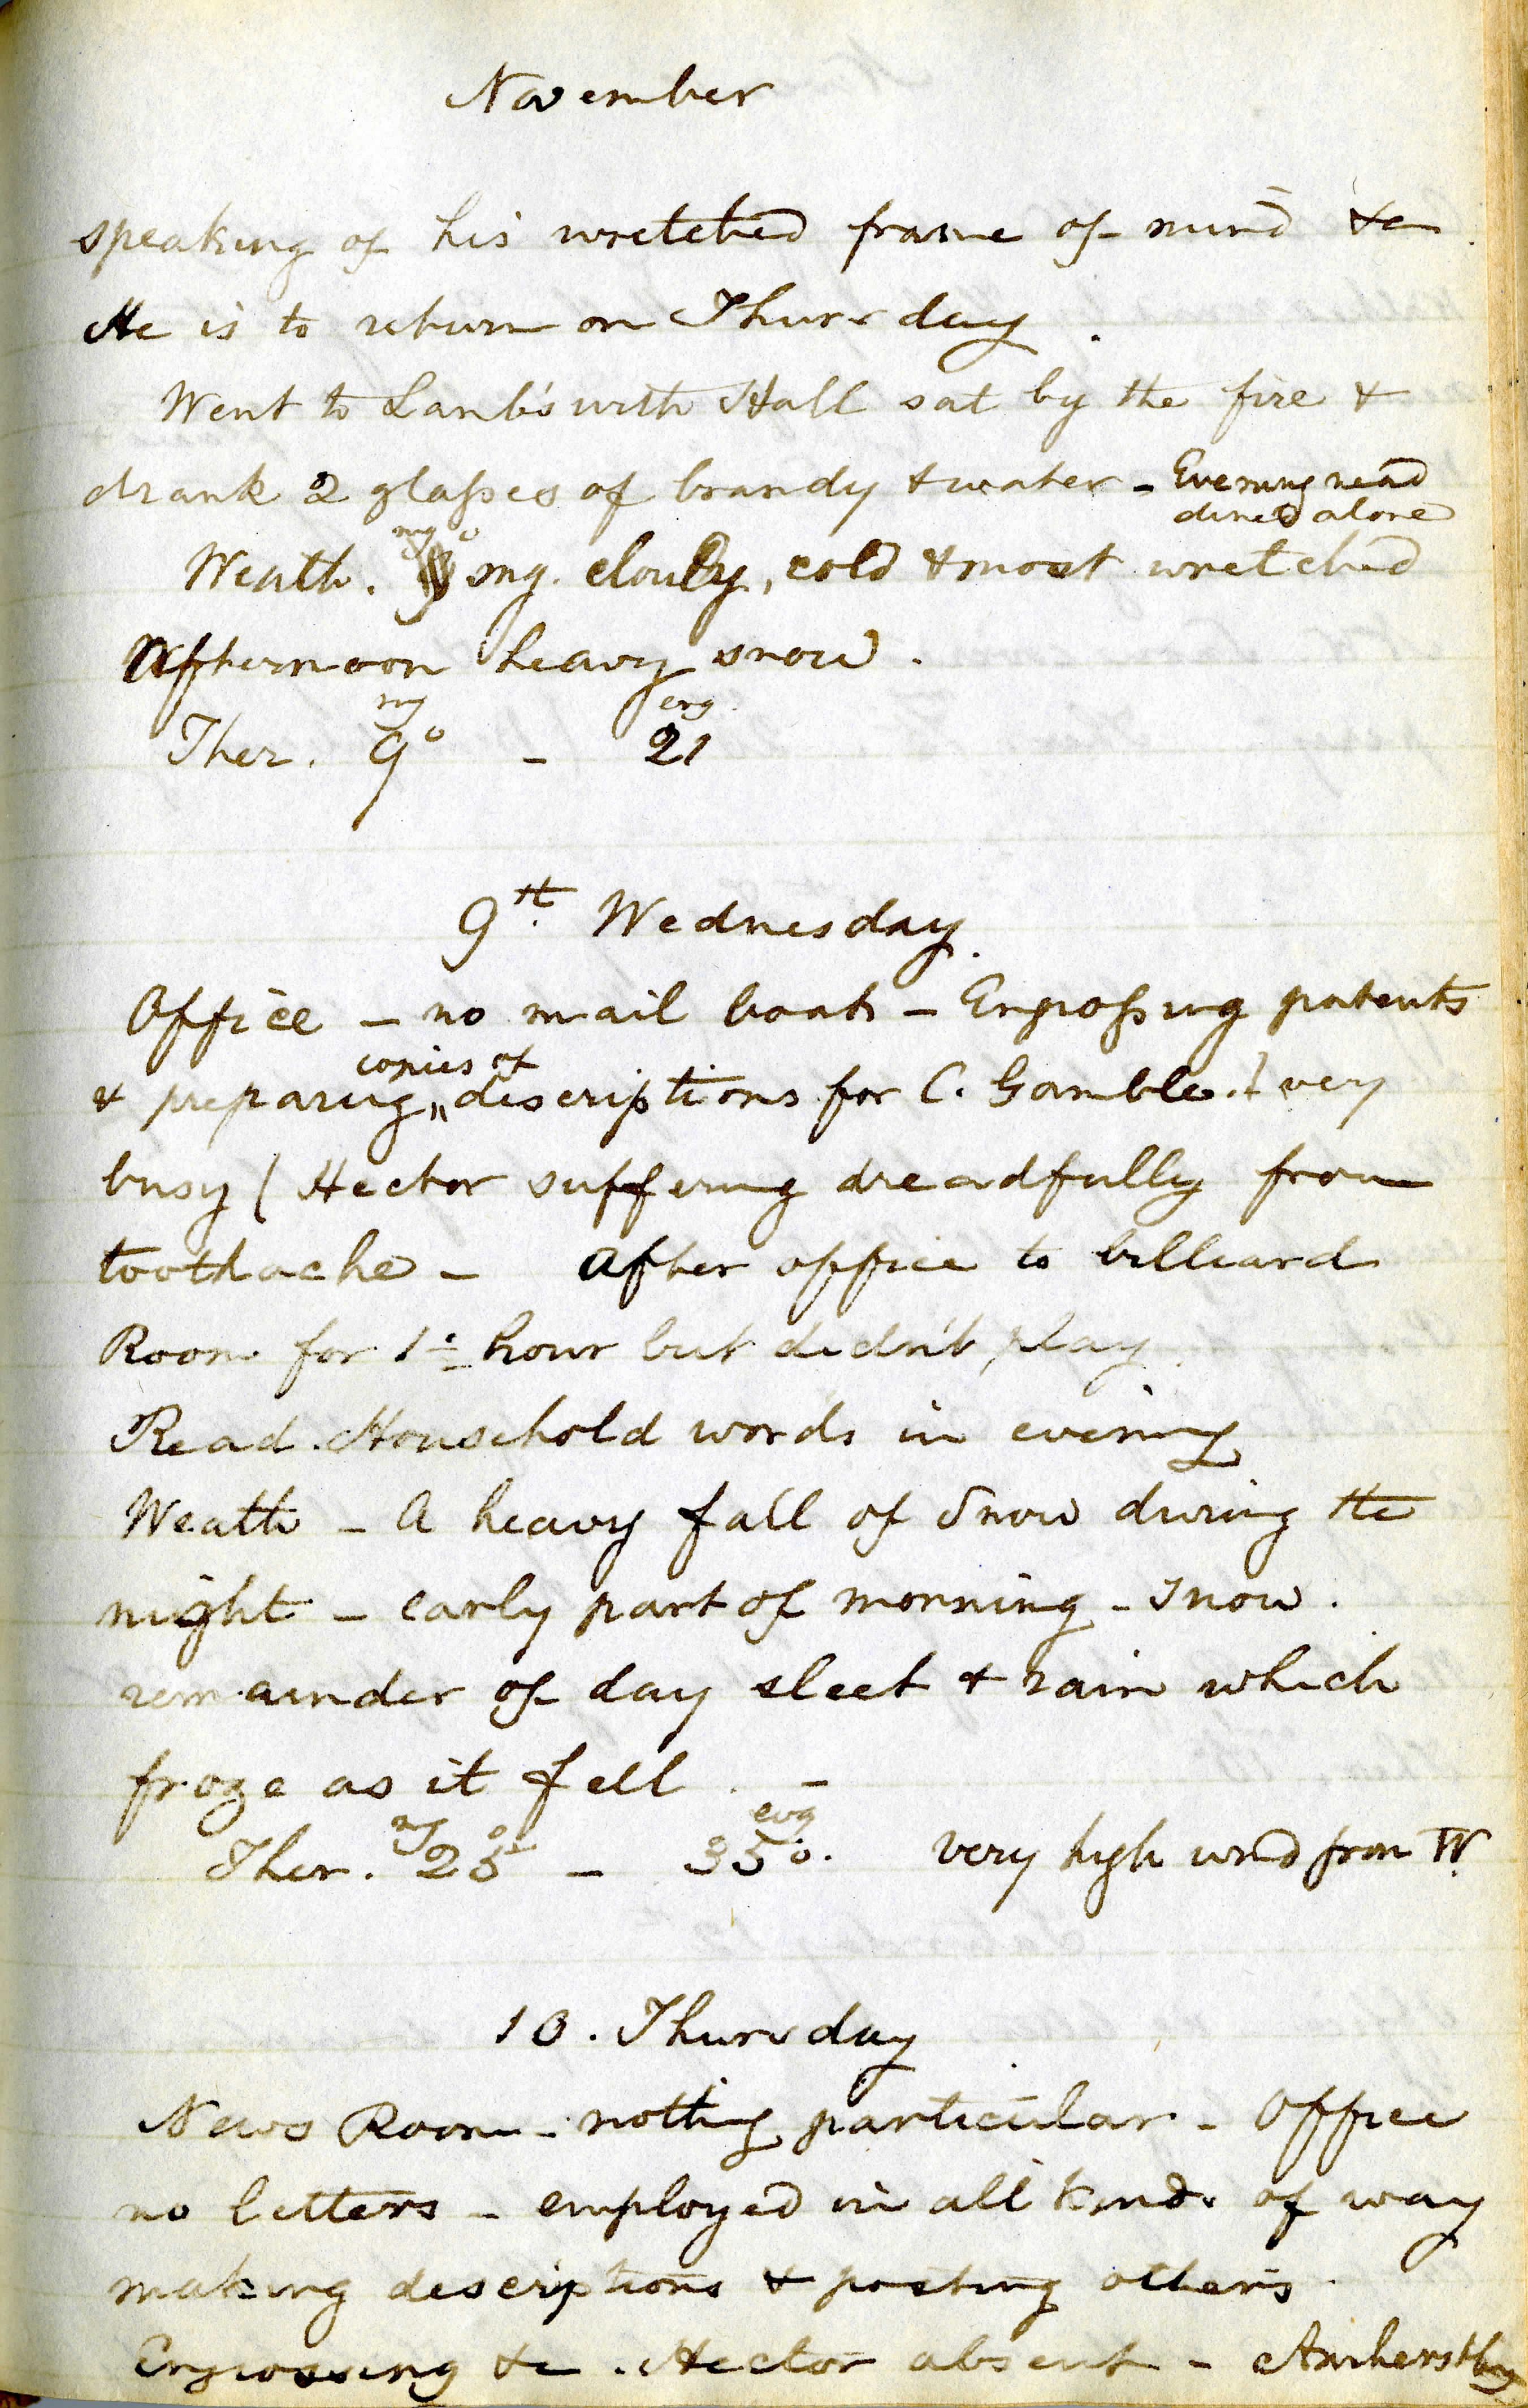 November
speaking of his wretched frame of mind &c
He is to return on Thursday.
Went to Lamb's with Hall sat by the fire &
drank 2 glasses of brandy & water - Evening read
dined alone
mg °
Weath. mg. cloudy, cold & most wretched
Afternoon heavy snow.
mg evg
Ther. 9° - 21
9th. Wednesday.
Office - no mail boats - Engrossing patents
copies of
& preparing " descriptions for C. Gamble. } very
busy ( Hector suffering dreadfully from
toothache - After office to billiard
Room for 1 hour but didn't play.
Read Household words in evening
Weath - A heavy fall of Snow during the
night - early part of morning - snow.
remainder of day sleet & rain which
froze as it fell. -
mg evg
Ther. 25° - 35°. very high wind from W.
10. Thursday
News Room - nothing particular - Office
no letters - employed in all kinds of way
making descriptions & posting others.
Engrossing &c. Hector absent - Amherstburg